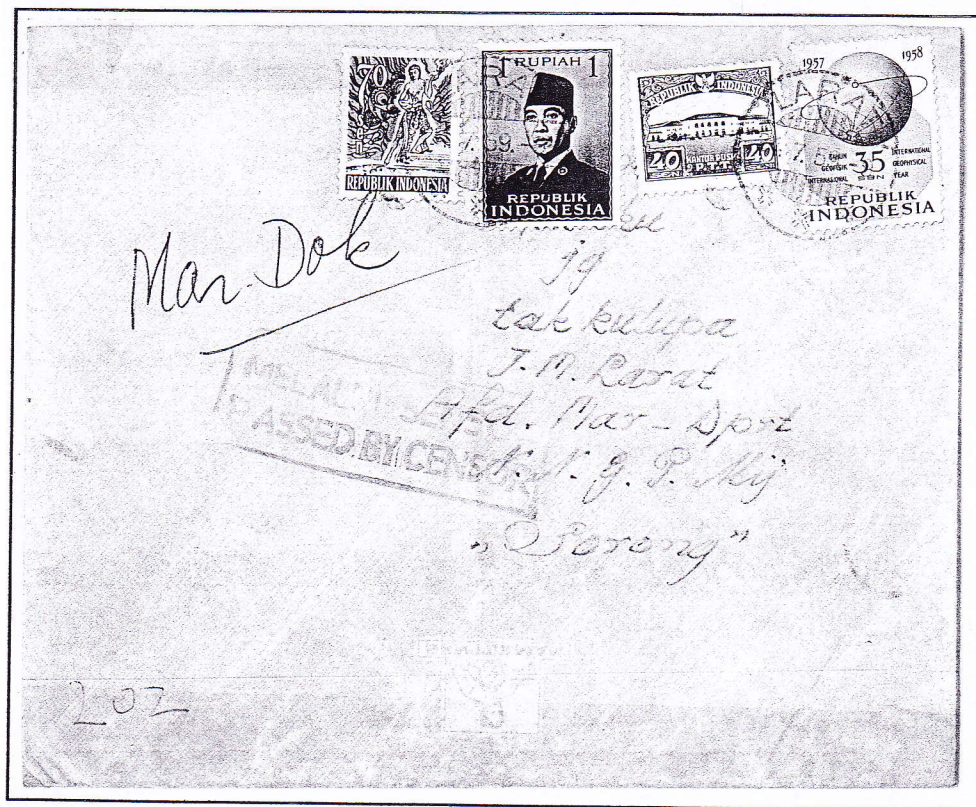 70
REPUBLIK INDONESIA
1 RUPIAH 1
REPUBLIK
INDONESIA
REPUBLIK INDONESIA
20 KANTOR PUSAT 20
1957 1958
TAHUN GEOFISIK INTERNASIONAL
35 SEN
INTERNATIONAL GEOPHYSICAL YEAR
REPUBLIK
INDONESIA
LARAT
7.59.
Mar-Dok
jg
tak kulupa
J.M. Rarat
Afd. Mar-Dprt
N.N.G.P. Mij
"Sorong"
PASSED BY CENSOR
202